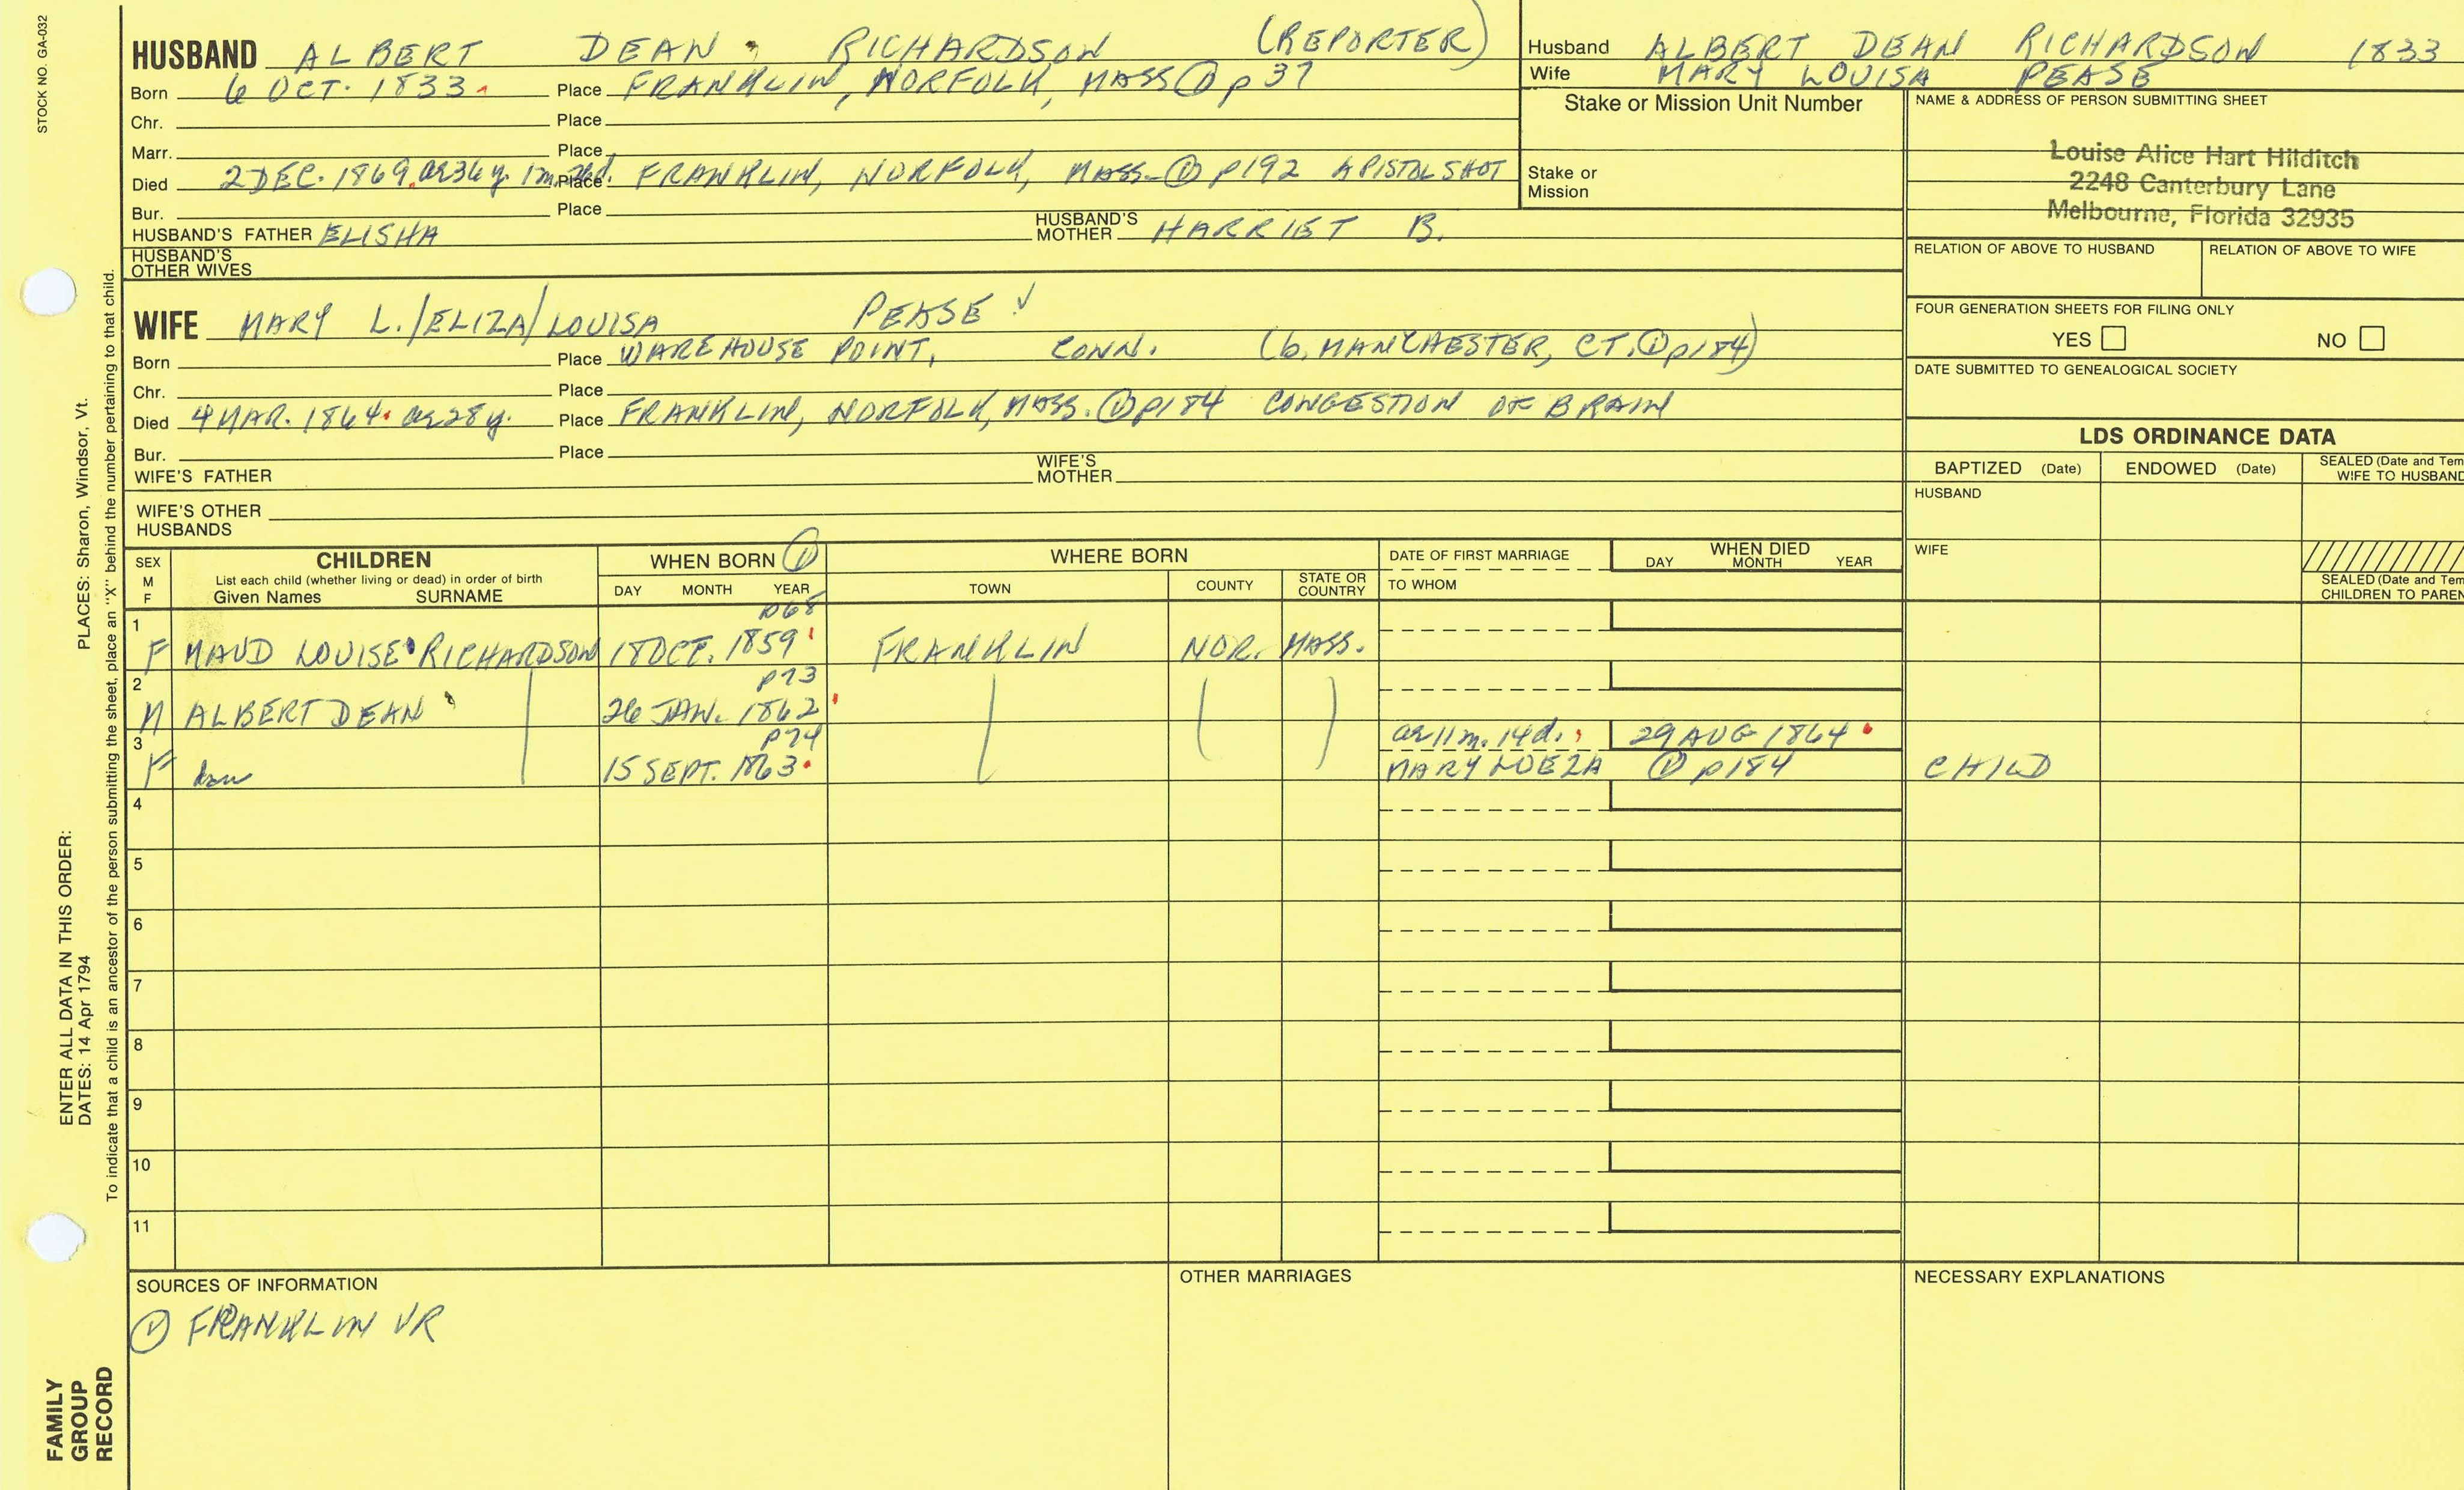 STOCK NO. GA-032
HUSBAND ALBERT DEAN RICHARDSON (REPORTER)
Born 6 OCT. 1833 Place FRANKLIN, NORFOLK, MASS ① p 37
Chr. Place
Marr. Place
Died 2 DEC. 1869, ae 36 y. 1 m. 26d. Place FRANKLIN, NORFOLK, MASS. ① p192 A PISTOL SHOT
Bur. Place
HUSBAND'S FATHER ELISHA HUSBAND'S MOTHER HARRIET B.
HUSBAND'S OTHER WIVES
WIFE MARY L./ELIZA/LOUISA PEASE ✓
Born Place WAREHOUSE POINT, CONN. (b. MANCHESTER, CT. ① p184)
Chr. Place
Died 4 MAR. 1864. ae 28 y. Place FRANKLIN, NORFOLK, MASS. ① p184 CONGESTION OF BRAIN
Bur. Place
WIFE'S FATHER WIFE'S MOTHER
WIFE'S OTHER HUSBANDS
Husband ALBERT DEAN RICHARDSON 1833
Wife MARY LOUISA PEASE
Stake or Mission Unit Number
Stake or Mission
NAME & ADDRESS OF PERSON SUBMITTING SHEET
Louise Alice Hart Hilditch
2248 Canterbury Lane
Melbourne, Florida 32935
RELATION OF ABOVE TO HUSBAND RELATION OF ABOVE TO WIFE
FOUR GENERATION SHEETS FOR FILING ONLY
YES NO
DATE SUBMITTED TO GENEALOGICAL SOCIETY
LDS ORDINANCE DATA
BAPTIZED (Date) ENDOWED (Date) SEALED (Date and Tem
WIFE TO HUSBAND
HUSBAND
WIFE
SEALED (Date and Tem
CHILDREN TO PAREN
SEX M F
CHILDREN
List each child (whether living or dead) in order of birth
Given Names SURNAME
WHEN BORN ①
DAY MONTH YEAR
WHERE BORN
TOWN COUNTY STATE OR COUNTRY
DATE OF FIRST MARRIAGE
TO WHOM
WHEN DIED
DAY MONTH YEAR
1 p68
F MAUD LOUISE RICHARDSON 18 OCT. 1859 FRANKLIN NOR. MASS.
2 p73
M ALBERT DEAN 26 JAN. 1862
3 p74 ae 11 m. 14 d. 29 AUG 1864
F 15 SEPT. 1863 MARY LOEZA ① p184 CHILD
4
5
6
7
8
9
10
11
SOURCES OF INFORMATION
① FRANKLIN VR
OTHER MARRIAGES
NECESSARY EXPLANATIONS
ENTER ALL DATA IN THIS ORDER:
DATES: 14 Apr 1794 PLACES: Sharon, Windsor, Vt.
To indicate that a child is an ancestor of the person submitting the sheet, place an "X" behind the number pertaining to that child.
FAMILY
GROUP
RECORD